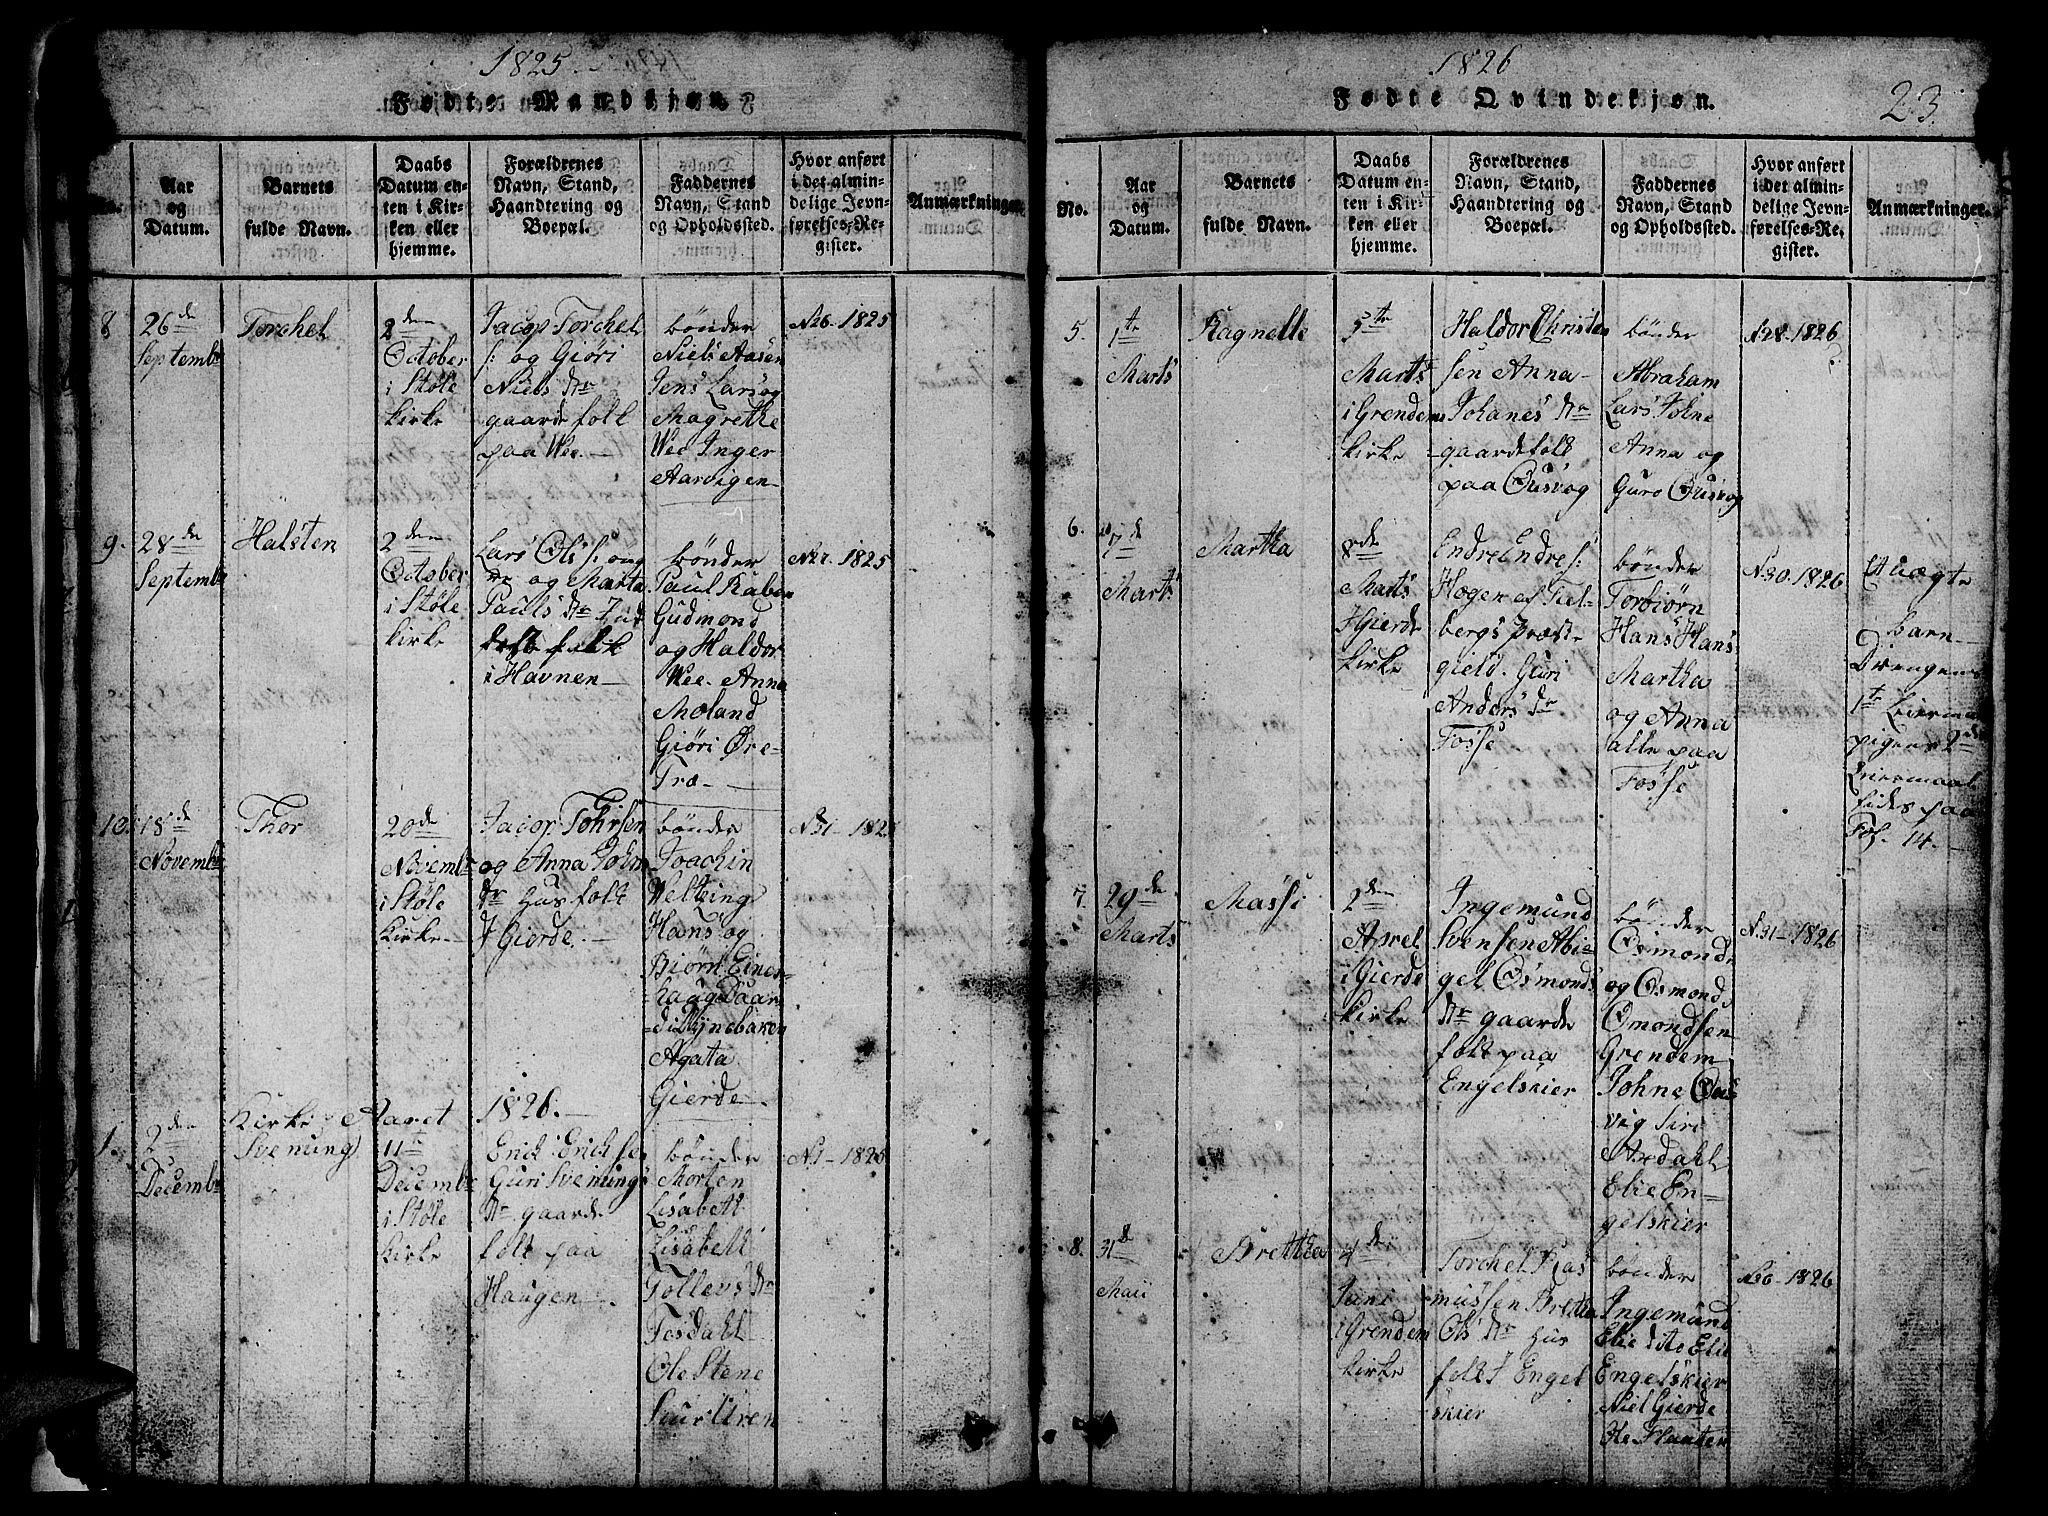 1825.
Fødte Mandkjøn.
Aar og Datum.
Barnets fulde Navn.
Daabs Datum enten i Kirken eller hjemme.
Forældrenes Navn, Stand, Haandtering og Boepæl.
Faddernes Navn, Stand og Opholdssted.
Hvor anført i det almindelige Jevnførelses-Register.
Anmærkninger.
8 26de Septembr
Torchel
2den
October
i Støle
kirke
Jacop Torchel
s: og Giøri
Niels Dr
gaarde folk
paa Wee.
bønder
Niels Aasen
Jens Lars og
Magrethe
Wee Inger
Aarvigen
N26. 1825
9. 28de Septembr
Halsten
2den
October
i Støle
kirke
Lars Ols s: ong
re og Marta
Pauls Dr
i Havnen
bønder
Paul Raben
Gudmond
og Haldor
Wee. Anna
Moland
Giøri Øre-
Træ
1825
10. 18de Novembr
Thor
20de
Novembr
i Støle
Kirke
Jacop Tohrsen
og Anna John
Dr hus folk
I Gierde.
bønder
Joachin
Weltzing
Hans og
Biørn Eines-
haug
Agata
Gierde.
N31- 1825
Kirke Aaret 1826.
1. 2den Decembr
Svenung
11te
Decembr
i Støle
kirke
Erick Erickse
Guri Svenungs
Dr gaarde
folk paa
Haugen
bønder
Morten
Lisabett
Lisabett
Tollevs Dr
Tosdahl
Ole Stene
Siur Uren
N.1- 1825
1826
23.
Fødte Qvindekjøn.
No.
Aar og Datum.
Barnets fulde Navn.
Daabs Datum enten i Kirken eller hjemme.
Forældrenes Navn, Stand, Haandtering og Boepæl.
Faddernes Navn, Stand og Opholdssted.
Hvor anført i det almindelige Jevnførelses-Register.
Anmærkninger.
5. 1te Marts
Ragnelle
5te
Marts
i Grendem
kirke
Haldor Christen
sen Anna
Johanes Dr
gaardefolk
paa Øusvog
bønder
Abraham
Lars Johne
Anna og
Guro Øusvog
N28. 1826
6. 7de Marts
Martha
8de
Marts
I Gierde
kirke
Endre Endre s:
Hogen af Fiel-
bergs præste
gield. Guri
Anders Dr
Fosse
bønder
Torbiørn
Hans Hans
Martha
og Anna
alle paa
Fosse
N.30. 1826
Uægte
barn
Drengens
1te Leiermaal
pigens 2de
Leiermaal
fides paa
Fol. 14.
7. 29de Marts
Massi
2den
Aprel
i Gierde
kirke
Ingemund
Svensen Abie
gel Osmonds
Dr gaarde
folk paa
Engelskier
bønder
Osmond
og Osmond
Omondsen
Grendem
Johne Øus
vig Siri
Axdahl
Elie En-
gelskier
N.31- 1826
8. 31te Maii
Brettha
4de
Juni
i Grendem
kirke
Torchel Ras
mussen Bretha
Ols Dr hus
folk I Engel
skier
bønder
Ingemund
Elie dito Elie
Engelskier
Niel Gierde
1826